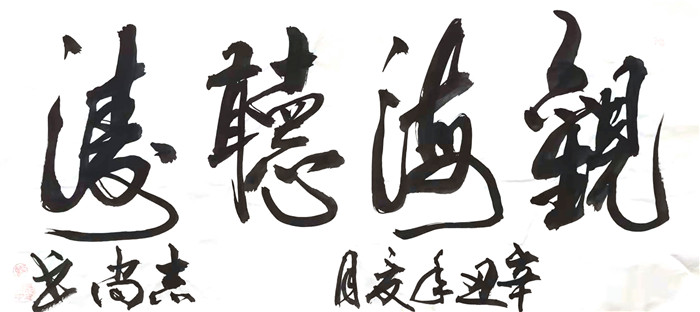 觀海聽濤
辛丑年夏月 志尚书